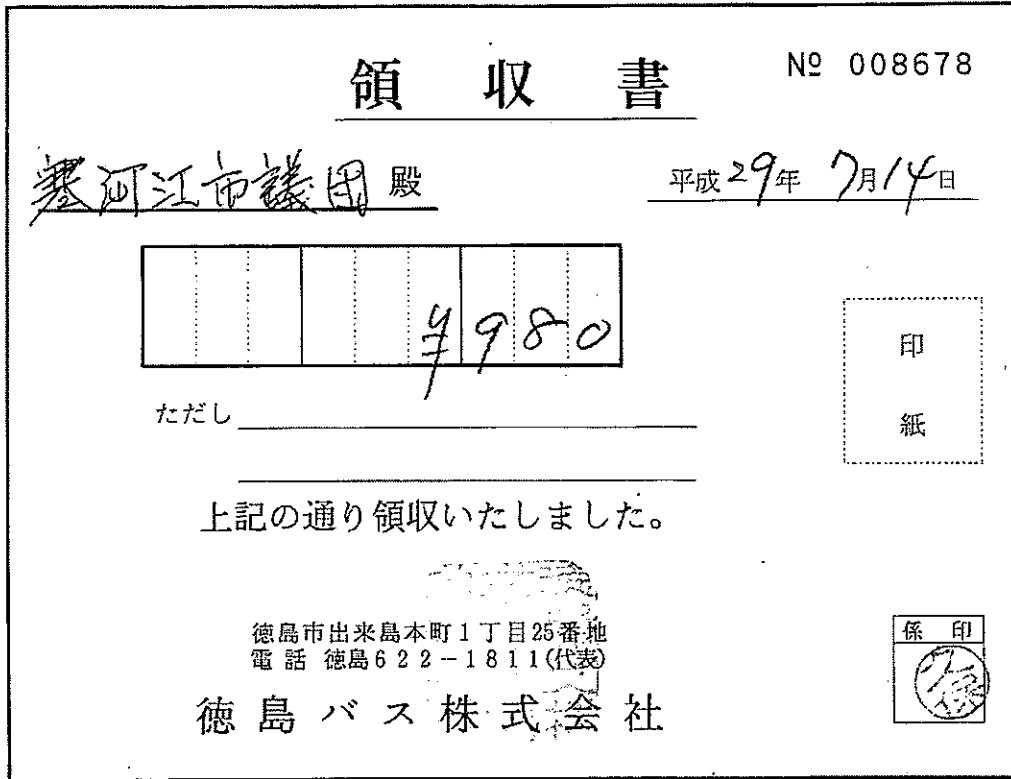 領収書
№ 008678
寒河江市議団 殿
平成29年 7月14日
¥980
印
紙
ただし
上記の通り領収いたしました。
徳島市出来島本町1丁目25番地
電話 徳島622-1811(代表)
徳島バス株式会社
係印